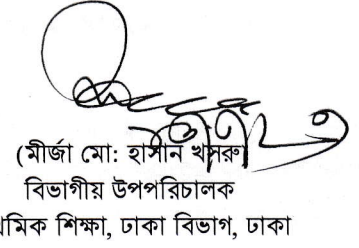 (মীর্জা মো: হাসান খসরু)
বিভাগীয় উপপরিচালক
থমিক শিক্ষা, ঢাকা বিভাগ, ঢাকা